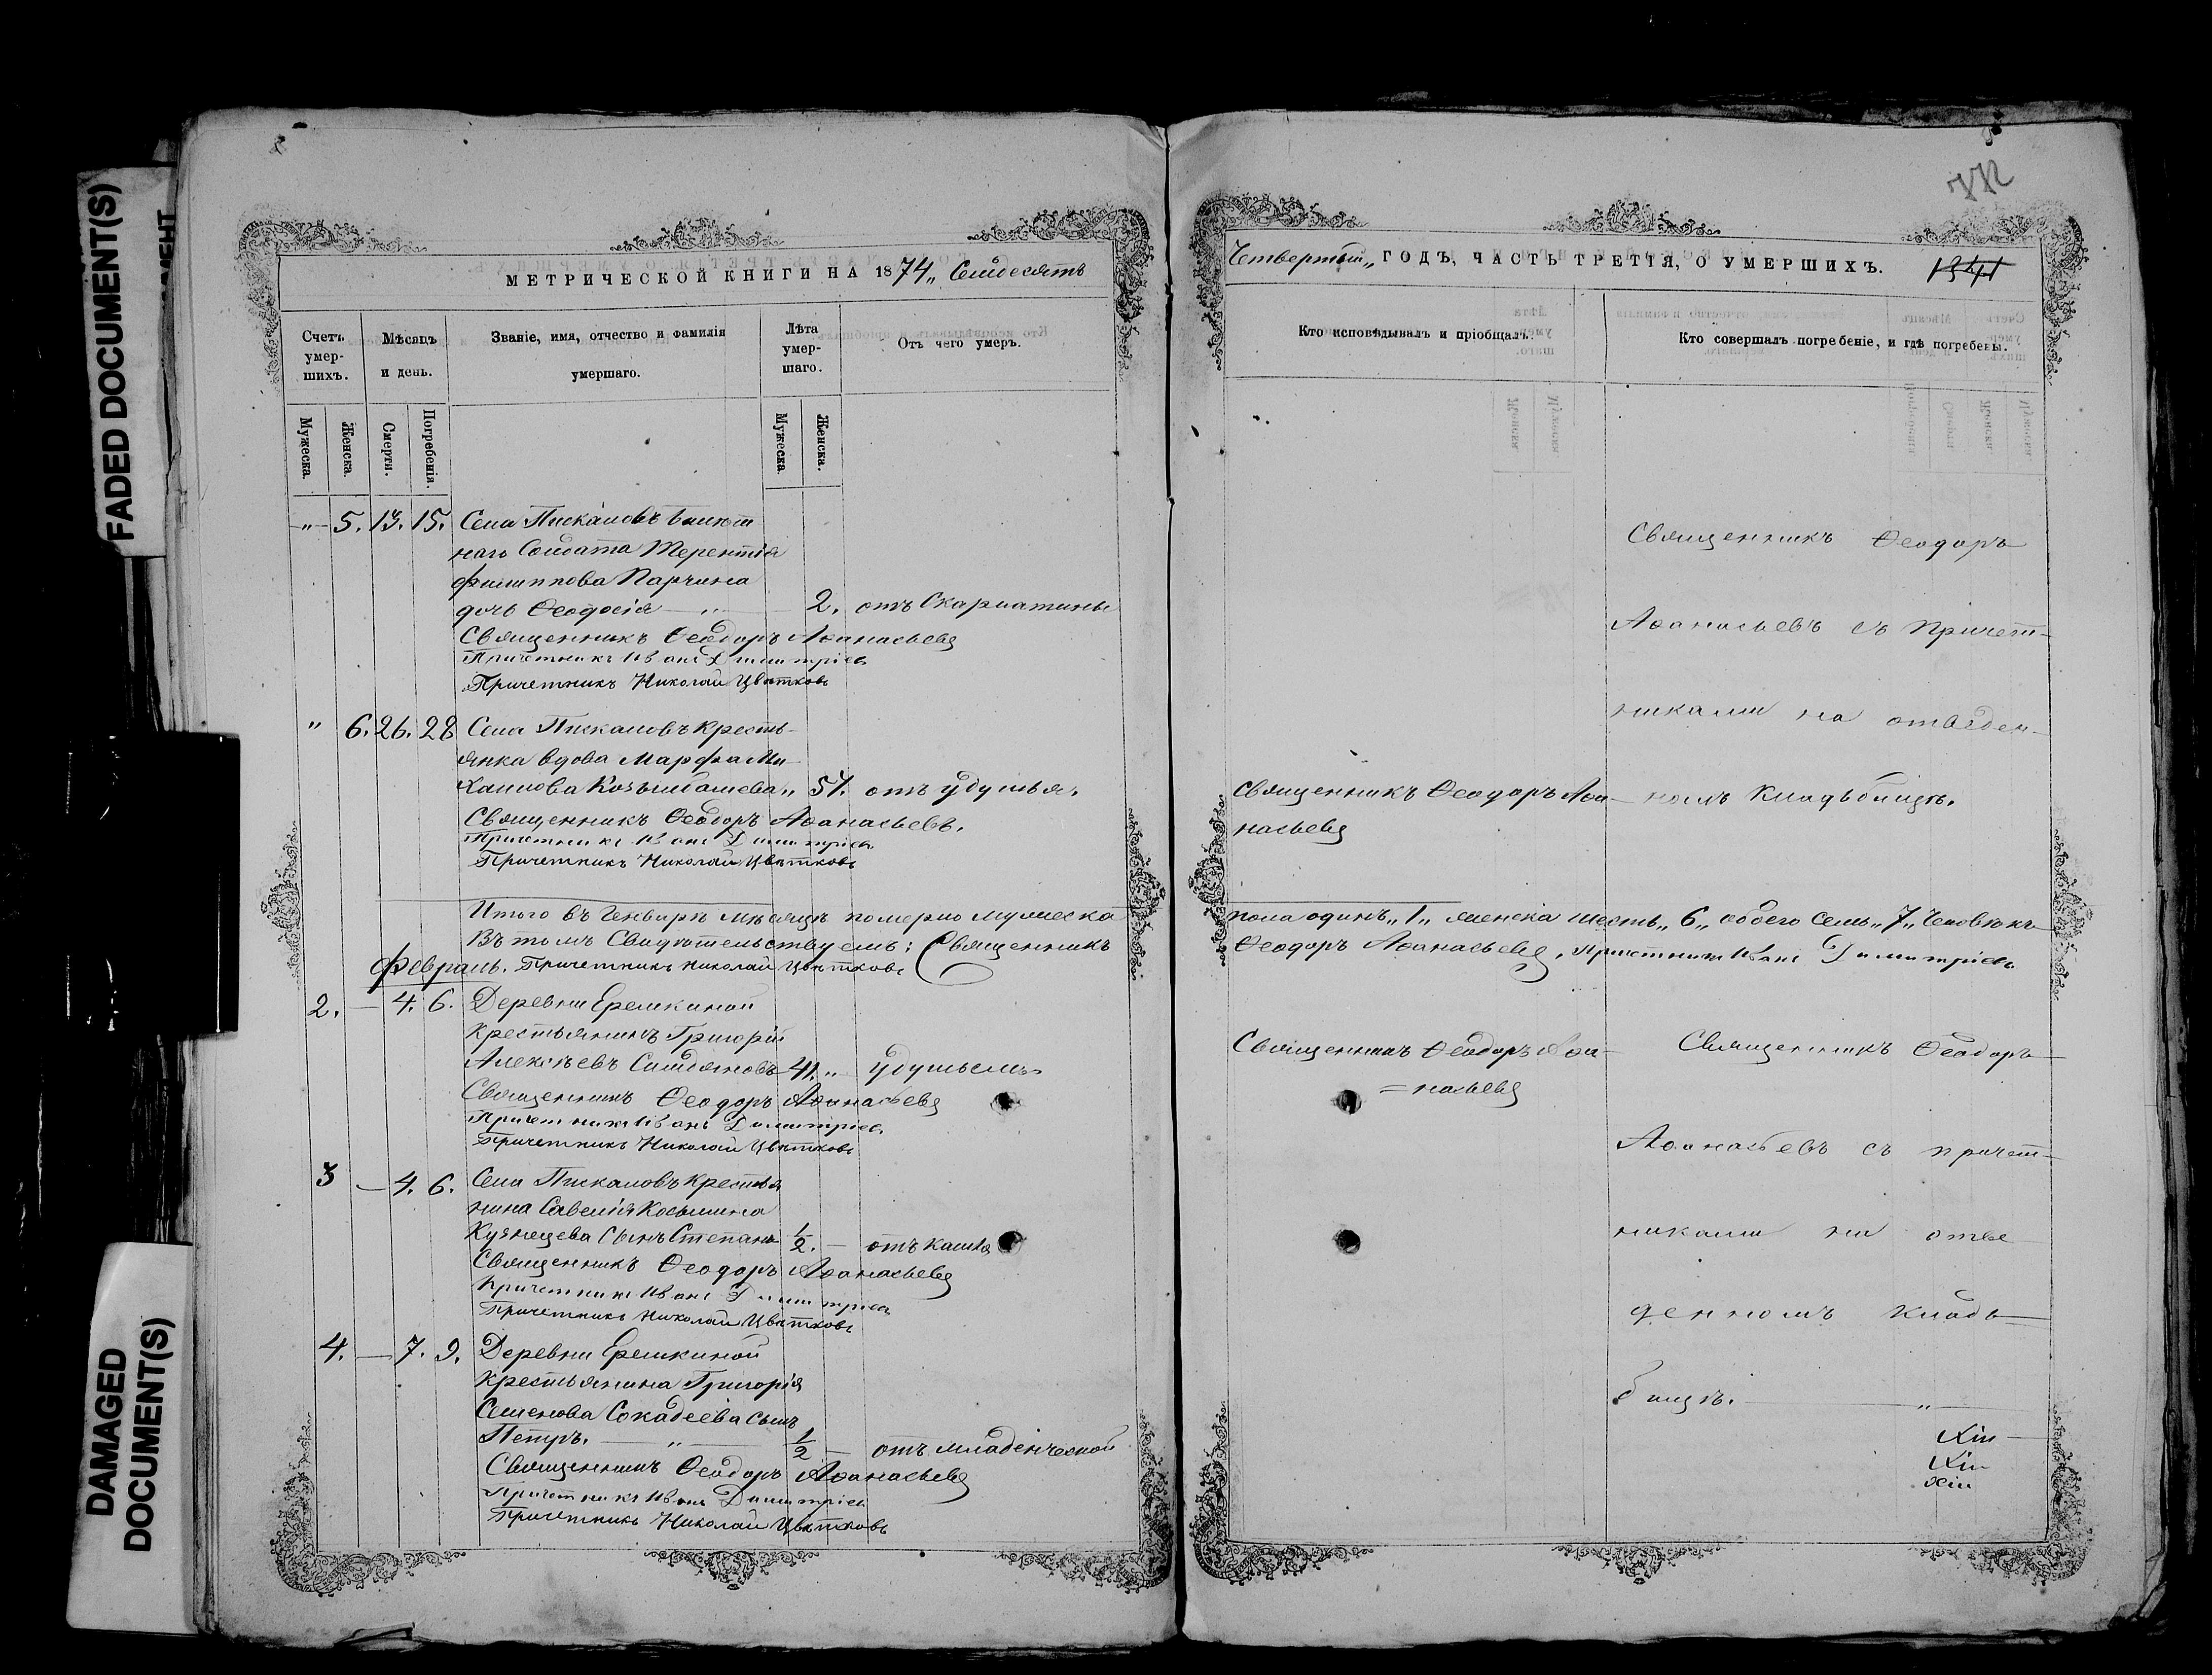 FADED DOCUMENT(S)
DAMAGED
DOCUMENT(S)
МЕТРИЧЕСКОЙ КНИГИ НА 1874„ Семдесятъ
Счетъ умер-шихъ.
Мѣсяцъ и день.
Званіе, имя, отчество и фамилія умершаго.
Лѣта умер-шаго.
Отъ чего умеръ.
Мужеска.
Женска.
Смерти.
Погребенія.
Мужеска.
Женска.
-„- 5. 13. 15. Села Пискаловъ билет
наго Солдата Терентія
Филиппова Парчина
дочь Ѳеодосія — „ — 2. отъ Скарлатины
Священникъ Ѳеодоръ Аѳанасьевъ
Причетникъ Иванъ Димитріевъ
Причетникъ Николай Цвѣтковъ
„ 6. 26. 28 Села Пискаловъ кресть-
янка вдова Марфа Ми-
хаилова „ 57. отъ удушья.
Священникъ Ѳеодоръ Аѳанасьевъ.
Причетникъ Иванъ Димитріевъ
Причетникъ Николай Цвѣтковъ
Итого въ Генварѣ мѣсяцѣ померло мужеска
Въ томъ Свидѣтельствуемъ: Священникъ
Февраль. Причетникъ Николай Цвѣтковъ
2. — 4. 6. Деревни Еремкиной
крестьянинъ Григорій
Алексѣевъ 41. „ удушьемъ
Священникъ Ѳеодоръ Аѳанасьевъ
Причетникъ Иванъ Димитріевъ
Причетникъ Николай Цвѣтковъ
3 — 4. 6. Села Пискаловъ крестья
нина Савелія Косьмина
Кузнецова сынъ Степанъ 1/2. — отъ кашля
Священникъ Ѳеодоръ Аѳанасьевъ
Причетникъ Иванъ Димитріевъ
Причетникъ Николай Цвѣтковъ
4. — 7. 9. Деревни Еремкиной
крестьянина Григорія
Семенова Сокадеева сынъ
Петръ. — „ — 1/2 — отъ младенческой
Священникъ Ѳеодоръ Аѳанасьевъ
Причетникъ Иванъ Димитріевъ
Причетникъ Николай Цвѣтковъ
Четвертый„ ГОДЪ, ЧАСТЬ ТРЕТІЯ, О УМЕРШИХЪ.
1341
Кто исповѣдывалъ и пріобщалъ.
Кто совершалъ погребеніе, и гдѣ погребены.
Священникъ Ѳеодоръ
Аѳанасьевъ съ причет-
никами на отведен-
номъ кладьбищѣ.
Священникъ Ѳеодоръ Аѳа-
насьевъ
пола одинъ „1„ женска шесть „6„ обоего семь „7„ Человѣкъ
Ѳеодоръ Аѳанасьевъ, Причетникъ Иванъ Димитріевъ
Священникъ Ѳеодоръ Аѳа-
=насьевъ
Священникъ Ѳеодоръ
Аѳанасьевъ съ причет-
никами на отве
денномъ кладь
бищѣ. — „ —